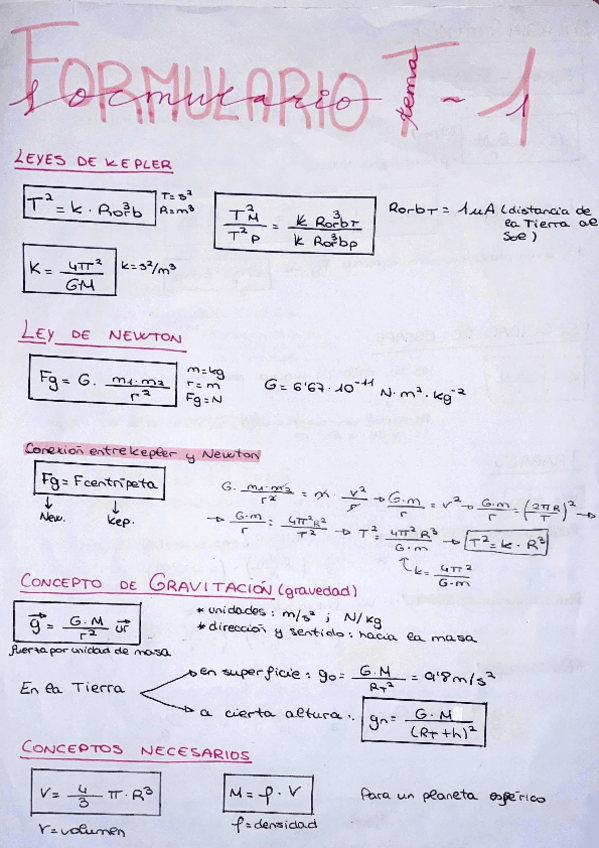 FORMULARIO T-1
formulario tema 1
LEYES DE KEPLER
T² = k · Rorb³
T = s²
R = m³
T²M / T²P = k Rorb³T / k Rorb³p
RorbT = 1 uA (distancia de la Tierra al Sol)
K = 4π² / GM
k = s²/m³
LEY DE NEWTON
Fg = G · m1·m2 / r²
m = kg
r = m
Fg = N
G = 6'67 · 10⁻¹¹ N·m²·kg⁻²
Conexión entre Kepler y Newton
Fg = Fcentrípeta
New. Kep.
G · m1·m2 / r² = m · v² / r → G·m / r = v² → G·m / r = (2πR / T)² →
→ G·m / r = 4π²R² / T² → T² = 4π²R³ / G·m → T² = k · R³
k = 4π² / G·m
CONCEPTO DE GRAVITACIÓN (gravedad)
g = G·M / r² ur
* unidades: m/s² ; N/kg
* dirección y sentido: hacia la masa
fuerza por unidad de masa
En la Tierra
en superficie: g0 = G·M / RT² = 9,8 m/s²
a cierta altura: gn = G·M / (RT + h)²
CONCEPTOS NECESARIOS
V = 4/3 π · R³
M = ρ · V
Para un planeta esférico
V = volumen
ρ = densidad